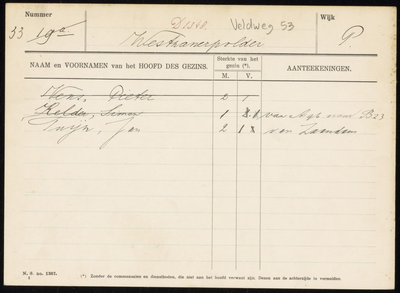 Nummer
D1540. Veldweg 53
Wijk
53 19a
P
Westzanerpolder
NAAM en VOORNAMEN van het HOOFD DES GEZINS.
Sterkte van het gezin (*).
M. V.
AANTEEKENINGEN.
Wens, Pieter 2 1
Kelder, Simon 1 van naar B23
Jan 2 1 van Zaandam
N. S. no. 1367.
(*) Zonder de commensalen en dienstboden, die niet aan het hoofd verwant zijn. Dezen aan de achterzijde te vermelden.